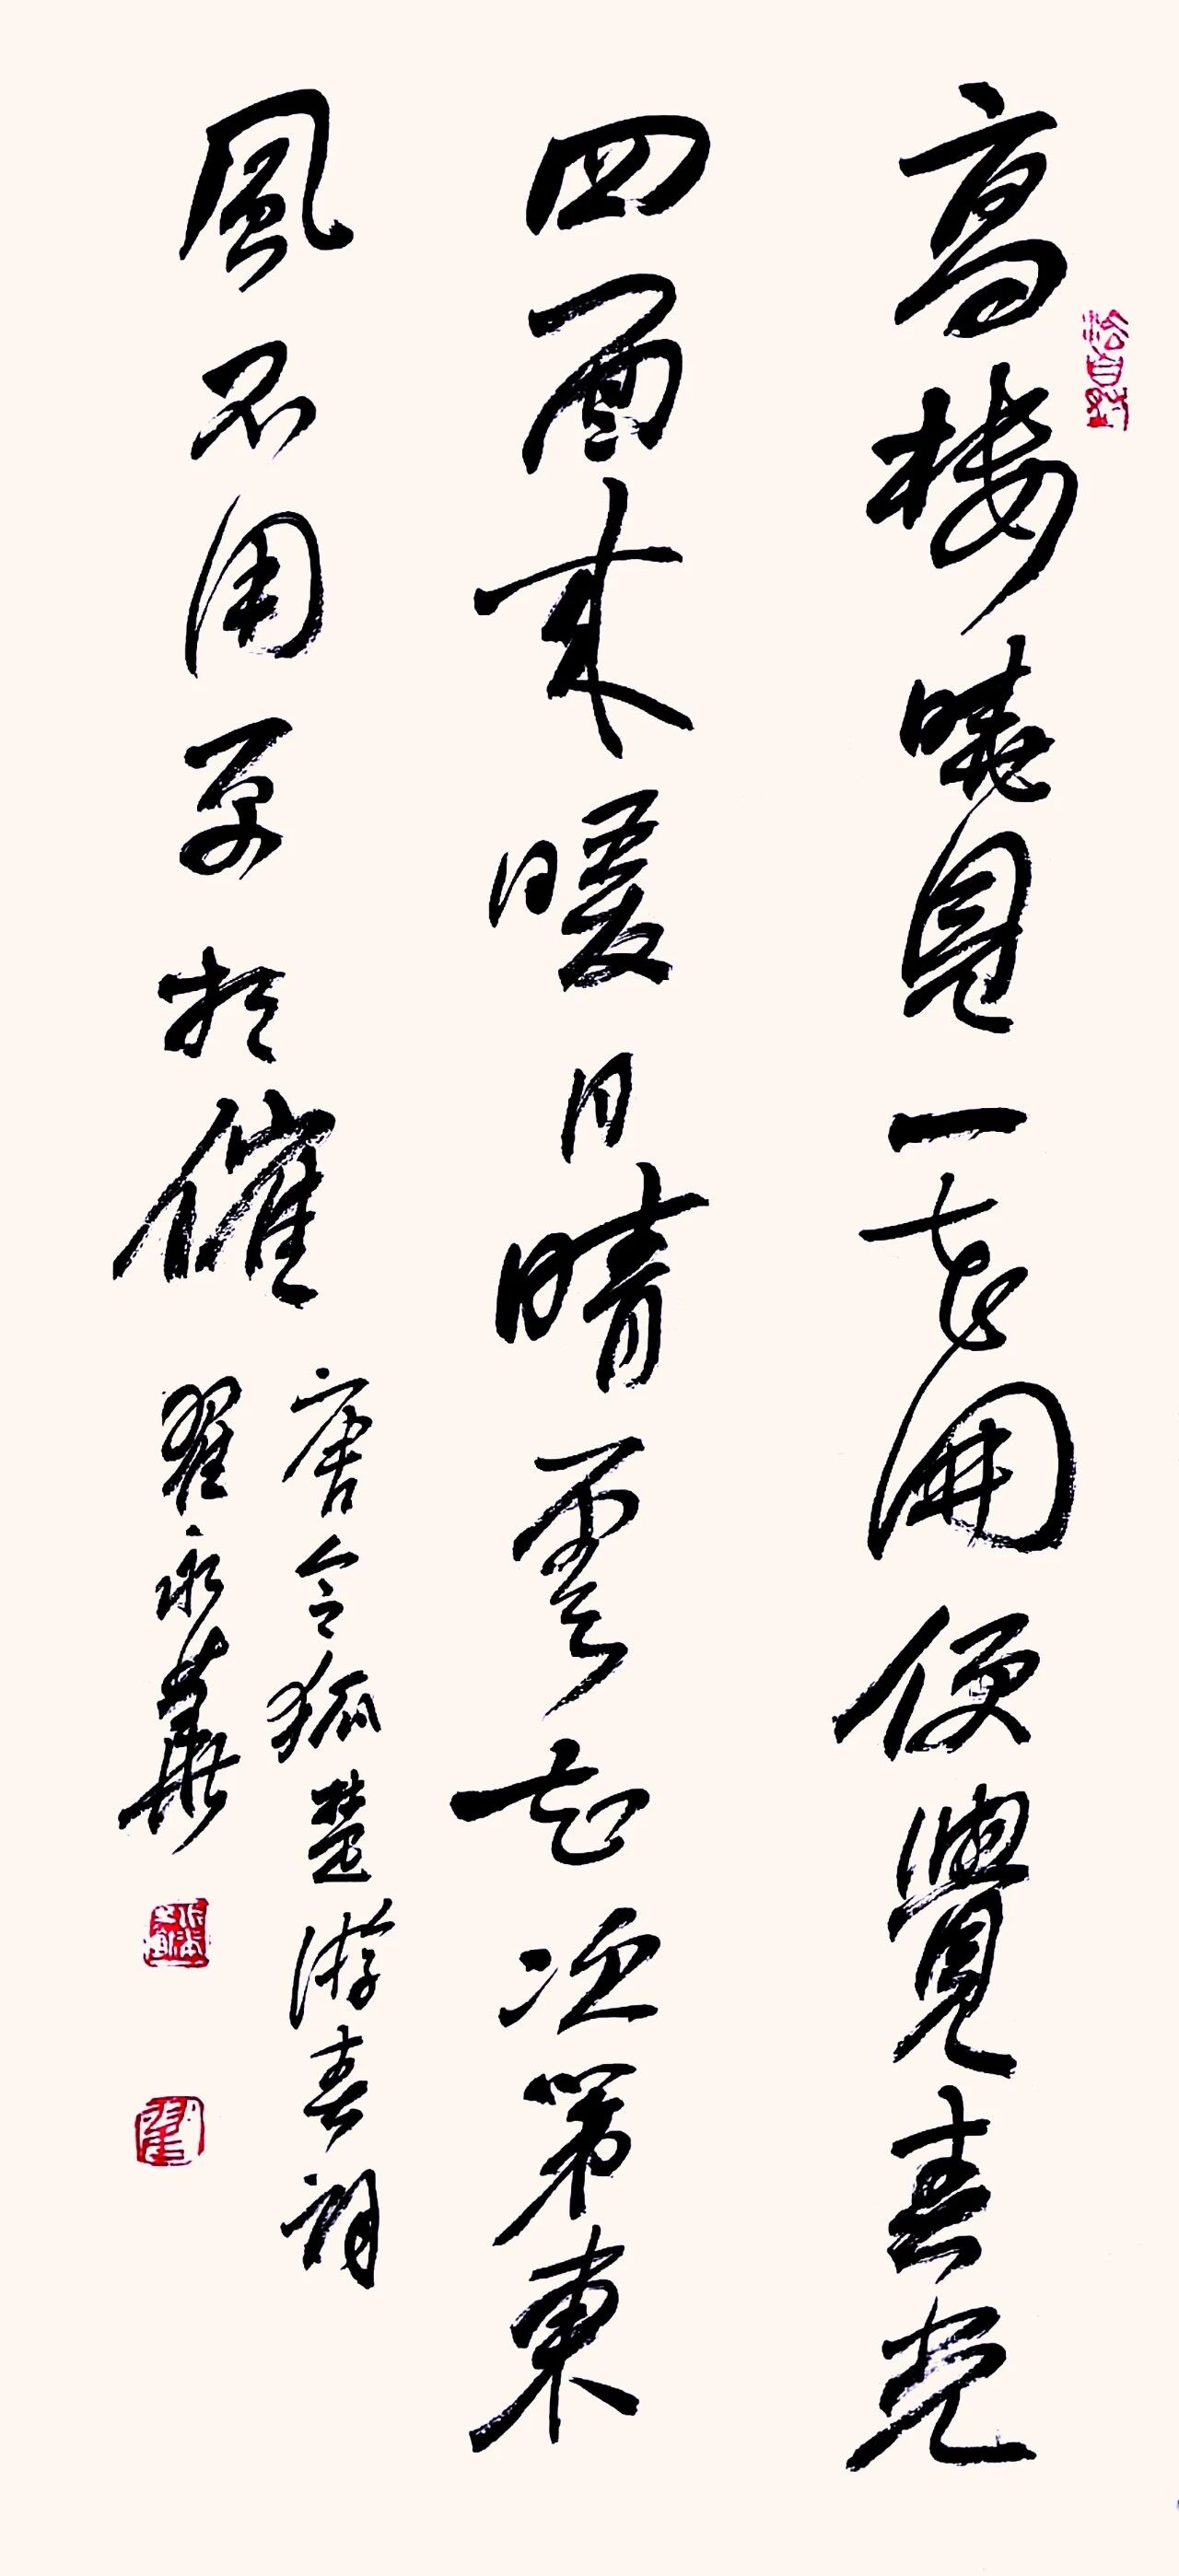 高樓曉見一花開便覺春光
四面来暖日晴雲知次第東
風不用更相催
唐令狐楚游春詞
翟永華